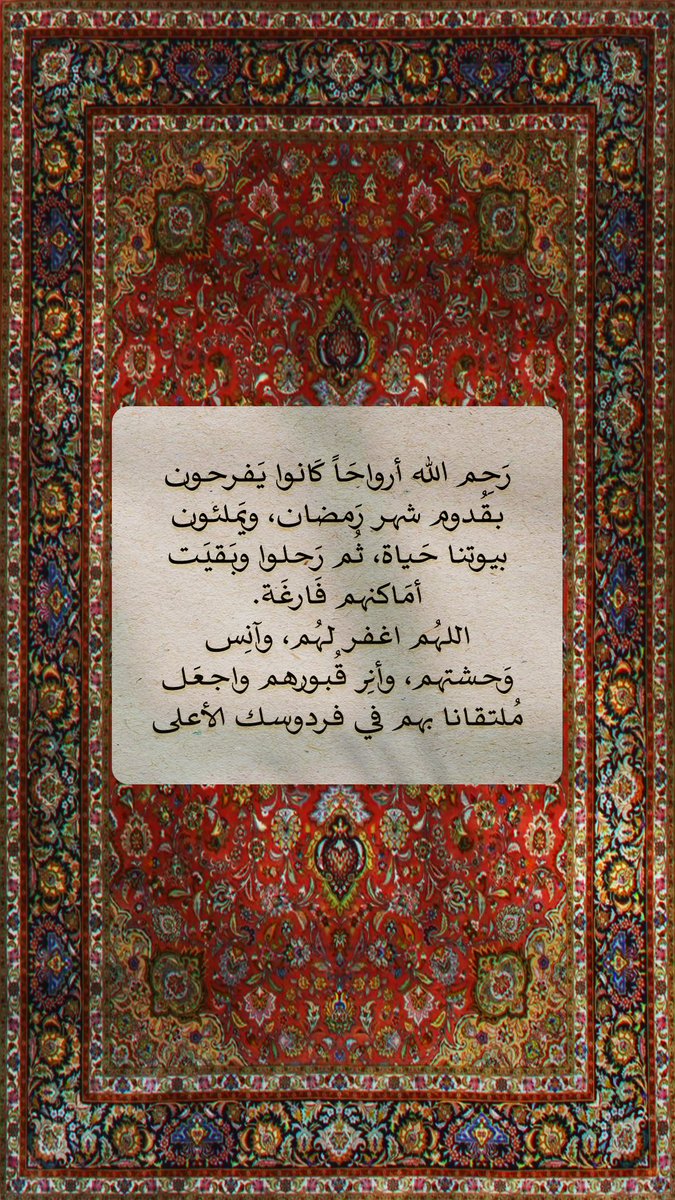 رَحِم الله أرواحَاً كَانوا يَفرحون
بقُدوم شهر رَمضان، ويَملئون
بيوتنا حَياة، ثُم رَحلوا وبَقيَت
أمَاكنهم فَارغَة.
اللهُم اغفر لهُم، وآنِس
وَحشتهم، وأنِر قُبورهم واجعَل
مُلتقانا بهم في فردوسك الأعلى